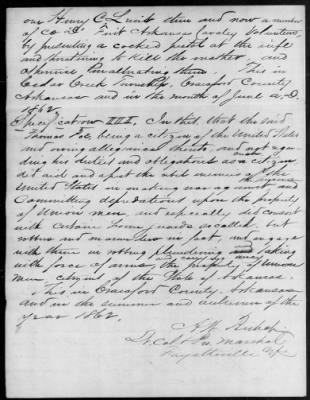 one Henry C. then and now a member
of Co D First Arkansas Cavalry Volunteers,
by presenting a cocked pistol at the wife
and pretending to kill the mother, and
otherwise them. This in
Cedar Creek Township, Crawford County
Arkansas and in the month of June A.D.
1862.
Specification III, In this that the said
Thomas being a citizen of the United States
and owing allegiance thereto, and not regar-
ding his duties and obligations as a citizen
did aid and assist the rebel enemies of the
United States in making war against and
Committing depredations upon the property
of Union men, and especially did consort
with certain home guards so called, but
robbers and in fact, and engage
with them in robbing plundering and taking
with force of arms, and carry away the property of Union
men citizens of the State of Arkansas.
This in Crawford County, Arkansas
and in the summer and autumn of the
year 1862.
A. W. Bishop
Lt. Col & Pro. Marshal
Fayetteville